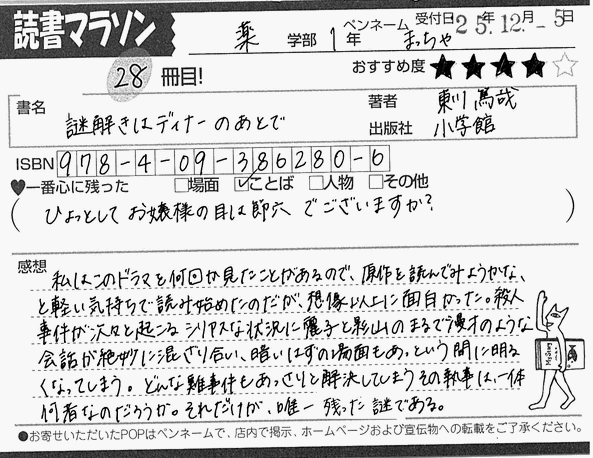 読書マラソン
薬 学部 1 年 ペンネーム まっちゃ 受付日 25年12月-5日
28 冊目!
おすすめ度 ★★★★☆
書名 謎解きはディナーのあとで
著者 東川 篤哉
出版社 小学館
ISBN 978-4-09-386280-6
♥一番心に残った □場面 ☑ことば □人物 □その他
(ひょっとして お嬢様の目は節穴 でございますか?)
感想
私はこのドラマを何回か見たことがあるので、原作を読んでみようかな、
と軽い気持ちで読み始めたのだが、想像以上に面白かった。殺人
事件が次々と起こる シリアスな状況に麗子と影山のまるで漫才のような
会話が絶妙に混ざり合い、暗いはずの場面もあっという間に明る
くなってしまう。どんな難事件もあっさりと解決してしまうその執事は、一体
何者なのだろうか。それだけが、唯一残った謎である。
●お寄せいただいたPOPはペンネームで、店内で掲示、ホームページおよび宣伝物への転載をご了承ください。